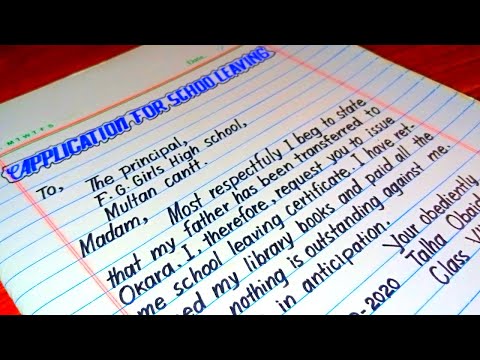 M T W T F S
Date
APPLICATION FOR SCHOO LEAVING
To,
The principal,
F.G. Girls High school,
Multan cantt.
Madam, Most respectfuly I beg to state
that my farther has been transferred to
Okara. I, therefore, request you to issue
me school leaving certificate. I have ret-
ed my library books and paid all the
nothing is outstanding against me.
in anticipation.
Your obediently
-2020 Talha Obaid
Class VII